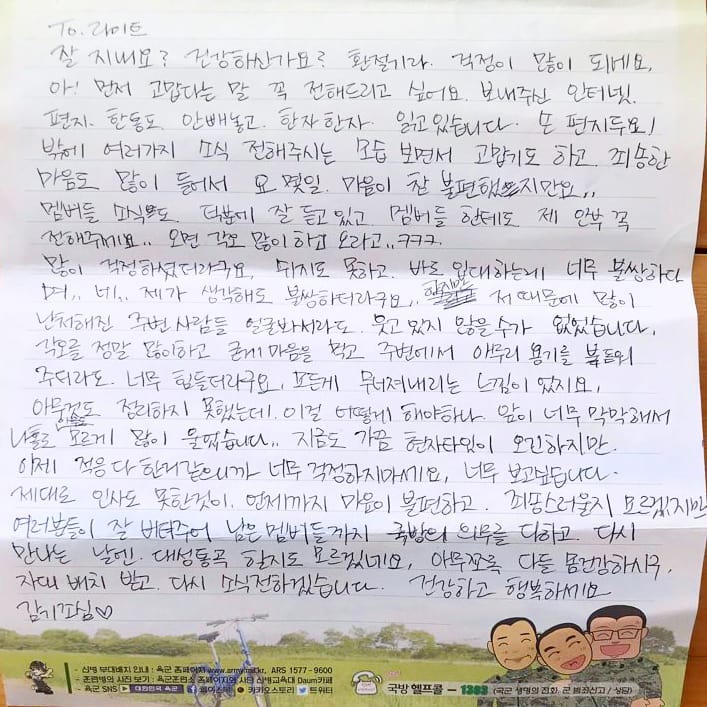 To. 라이트
잘 지내요? 건강하신가요? 환절기라. 걱정이 많이 되네요,
아! 먼저 고맙다는 말 꼭 전해드리고 싶어요. 보내주신 인터넷.
편지. 한통도. 안빼놓고. 한자한자. 읽고있습니다. 손 편지두요!
밖에 여러가지 소식 전해주시는 모습 보면서 고맙기도 하고. 죄송한
마음도 많이 들어서 요 몇일. 마음이 참 불편했지만요,,
멤버들 소식도. 덕분에 잘 듣고 있고. 멤버들 한테도. 제 안부 꼭
전해주세요.. 오면 각오 많이 하고 오라고..ㅋㅋㅋ.
많이 걱정하셨더라구요, 쉬지도 못하고. 바로 입대하는데 너무 불쌍하다
며,. 네.. 제가 생각해도 불쌍하더라구요.. 하지만 저 때문에 많이
난처해진 주변 사람들 얼굴봐서라도. 웃고 있지 않을수가 없었습니다.
각오를 정말 많이하고 굳게 마음을 먹고 주변에서 아무리 용기를 북돋워
주더라도. 너무 힘들더라구요, 모든게 무너져내리는 느낌이 있지요,
아무것도 정리하지 못했는데. 이걸 어떻게 해야하나. 앞이 너무 막막해서
나홀로 아무도 모르게 많이 울었습니다,. 지금도 가끔 현자타임이 오긴하지만.
이제 적응 다 한거같으니까 너무 걱정하지마세요, 너무 보고싶습니다.
제대로 인사도 못한것이. 언제까지 마음이 불편하고. 죄송스러울지 모르겠지만
여러분들이 잘 버텨주어 남은 멤버들까지 국방의 의무를 다하고. 다시
만나는 날엔. 대성통곡 할지도 모르겠네요, 아무쪼록 다들 몸건강하시구,
자대 배치 받고. 다시 소식전하겠습니다. 건강하고 행복하세요
감기조심♡
- 신병 부대배치 안내 : 육군 홈페이지 www.army.mil.kr, ARS 1577-9600
- 훈련병의 사진 보기 : 육군훈련소 홈페이지와 사단 신병교육대 Daum카페
- 육군 SNS 대한민국 육군 페이스북 카카오스토리 트위터
국방헬프콜 - 1303 (국군 생명의 전화, 군 범죄신고 / 상담)